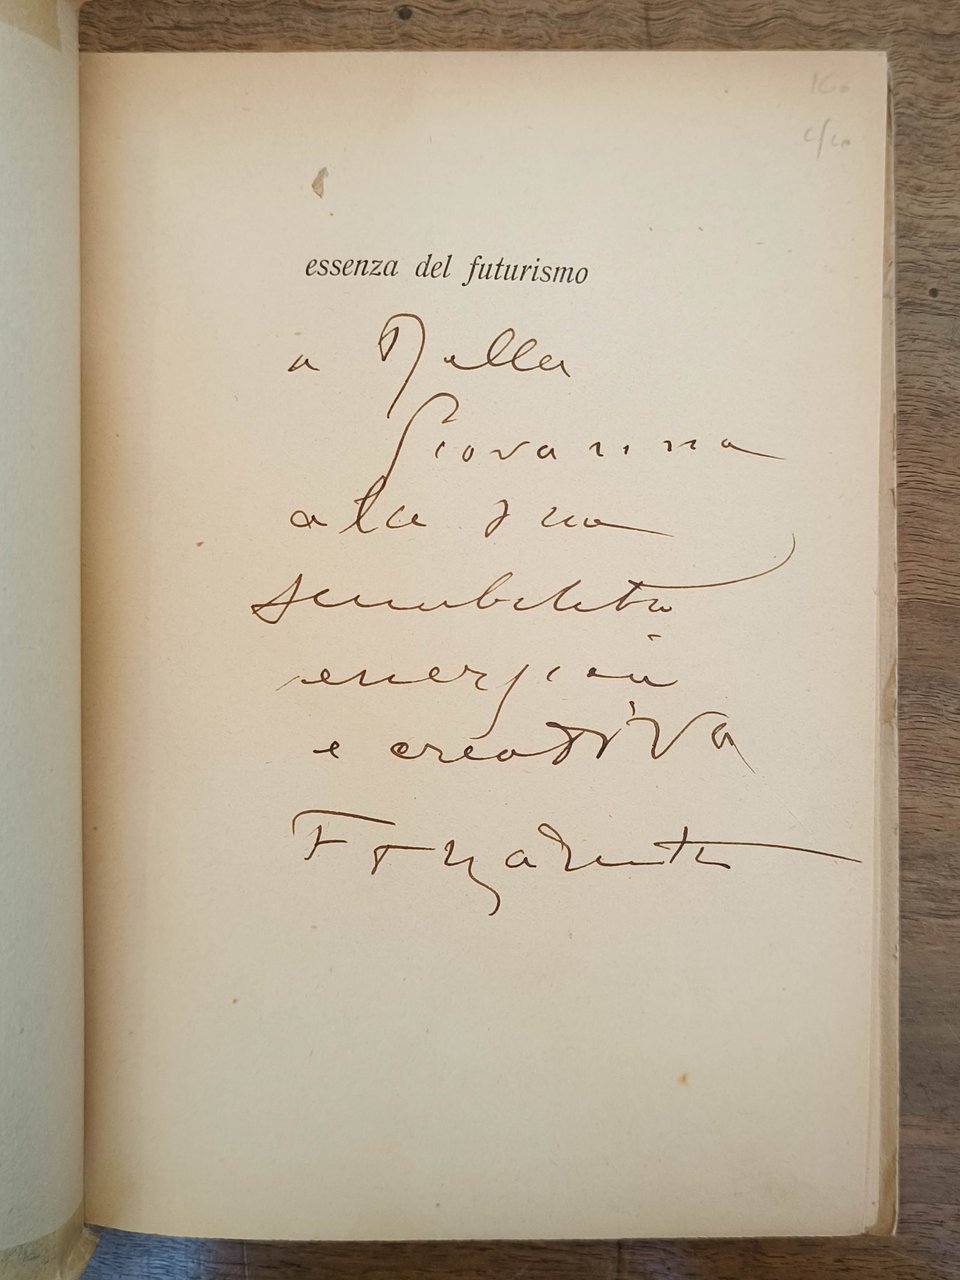 essenza del futurismo
a Nella
Giovanna
alla sua
sensibilità
energica
e creativa